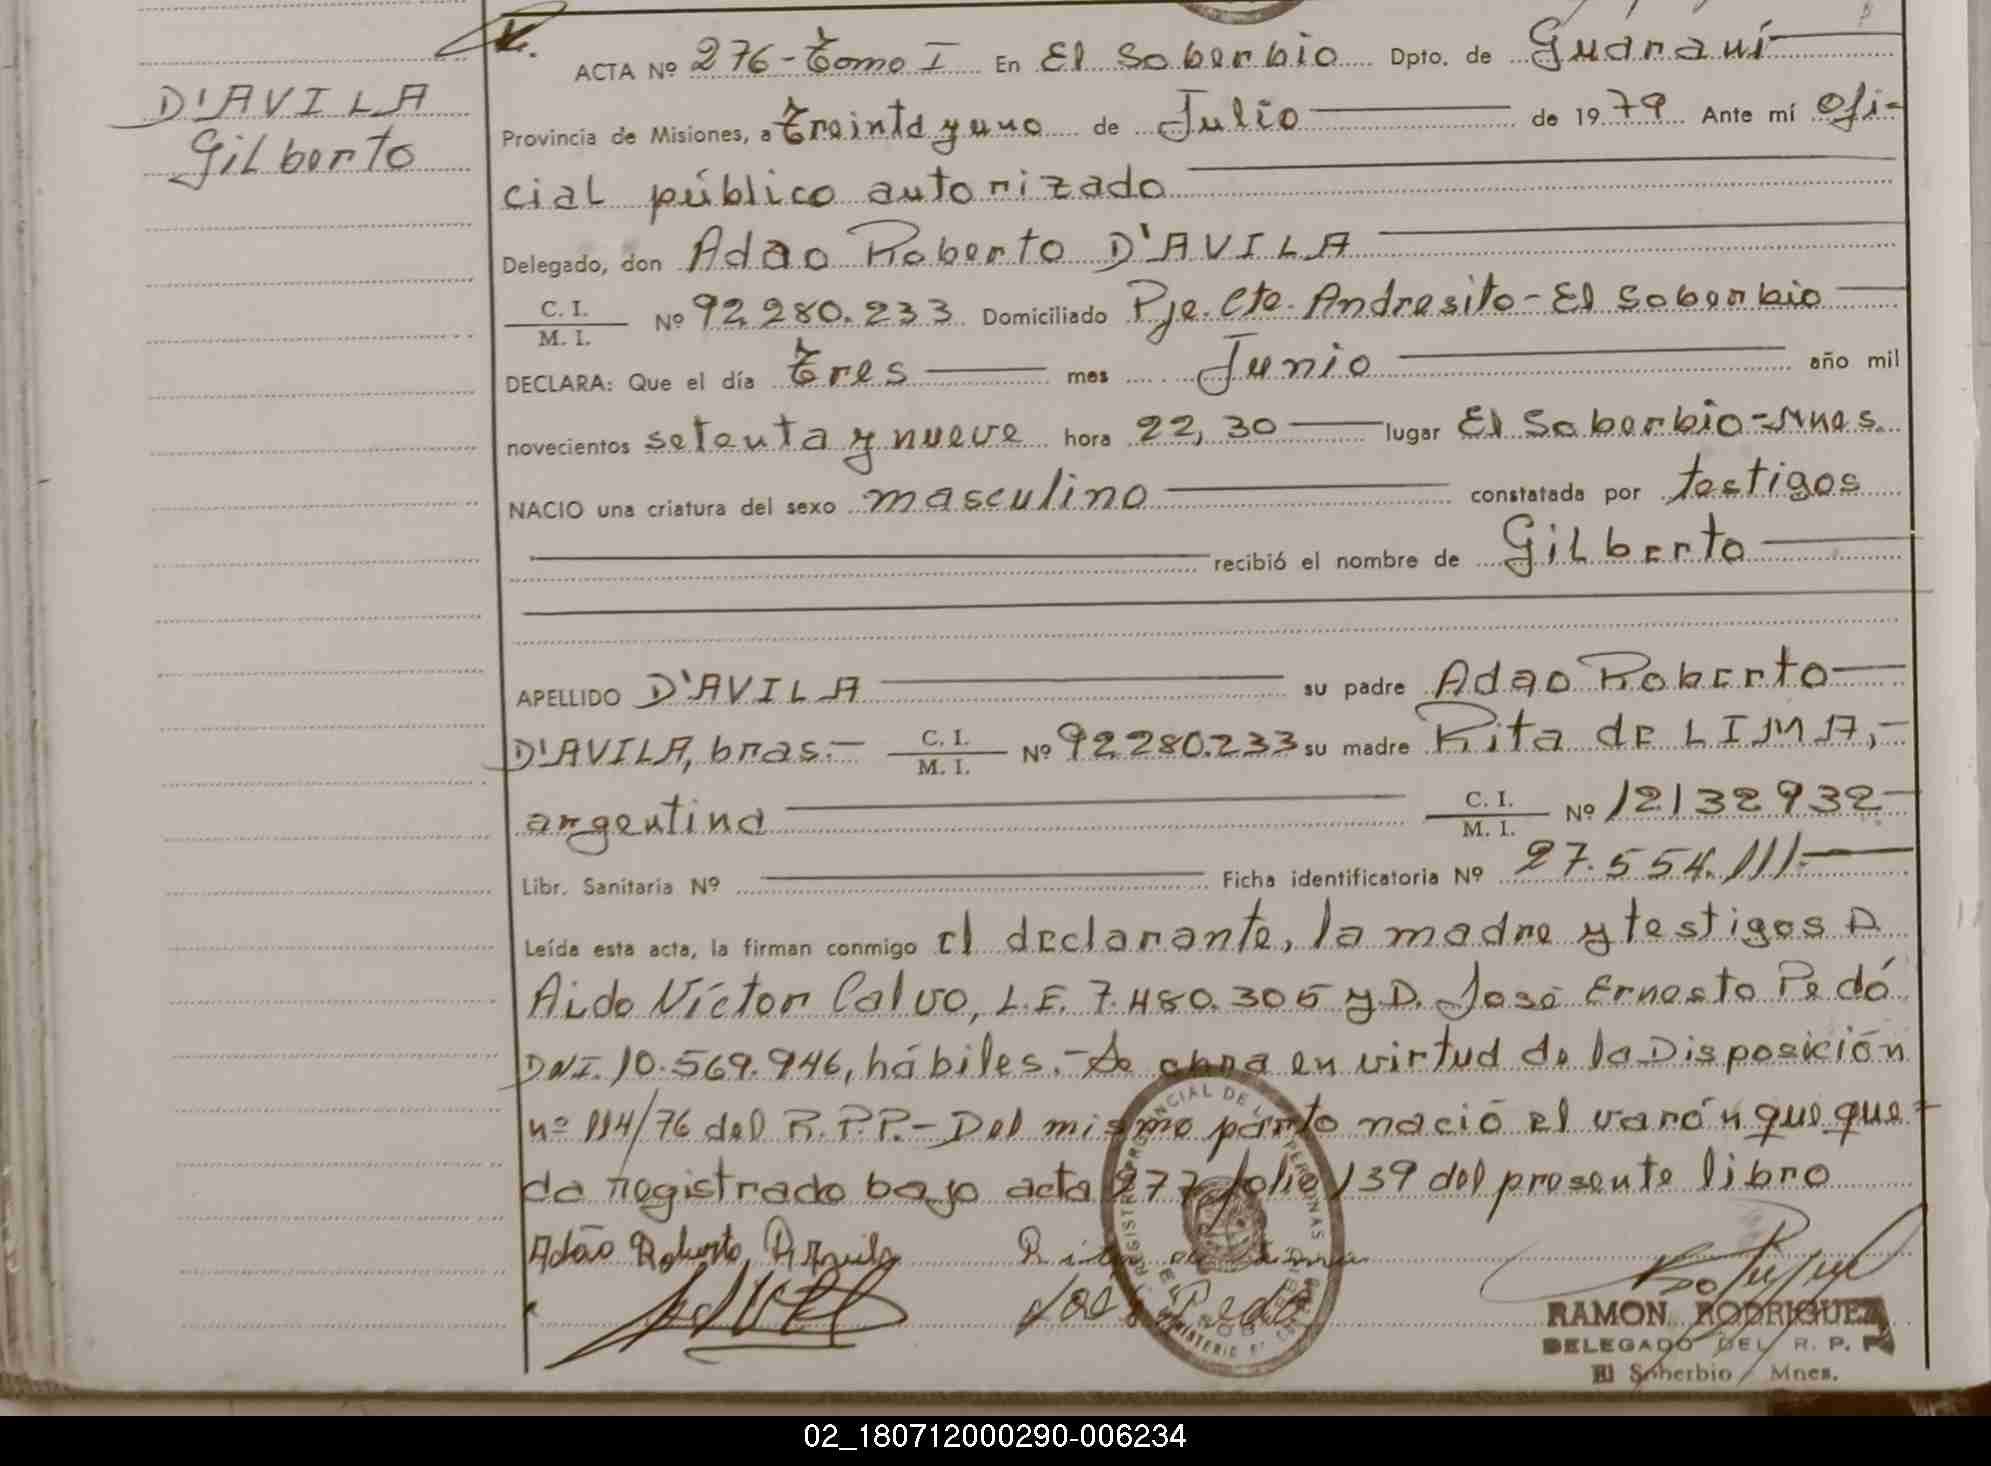 D'AVILA
Gilberto
ACTA Nº 276-Tomo I En El Soberbio Dpto. de Guaraní
Provincia de Misiones, a Treinta y uno de Julio de 1979 Ante mí Ofi-
cial público autorizado
Delegado, don Adao Roberto D'AVILA
C. I.
M. I. Nº 92.280.233 Domiciliado Pje. Cte. Andresito-El Soberbio
DECLARA: Que el día Tres mes Junio año mil
novecientos setenta y nueve hora 22,30 lugar El Soberbio-Mnes.
NACIO una criatura del sexo masculino constatada por testigos
recibió el nombre de Gilberto
APELLIDO D'AVILA su padre Adao Roberto
D'AVILA, bras.- C. I.
M. I. Nº 92280.233 su madre Rita de LIMA,-
argentina C. I.
M. I. Nº 12132932
Libr. Sanitaria Nº Ficha identificatoria Nº 27.554.111.
Leída esta acta, la firman conmigo el declarante, la madre y testigos D.
Aldo Víctor Calvo, L.E. 7.480.305 y D. José Ernesto Pedó
DNI. 10.569.946, hábiles.- Se obra en virtud de la Disposición
nº 114/76 del R.P.P.- Del mismo parto nació el varón que que-
da registrado bajo acta 277 folio 139 del presente libro
Adão Roberto D Avila Rita de Lima
José Pedó
RAMON RODRIGUEZ
DELEGADO DEL R. P. P.
El Soberbio Mnes.
02_180712000290-006234